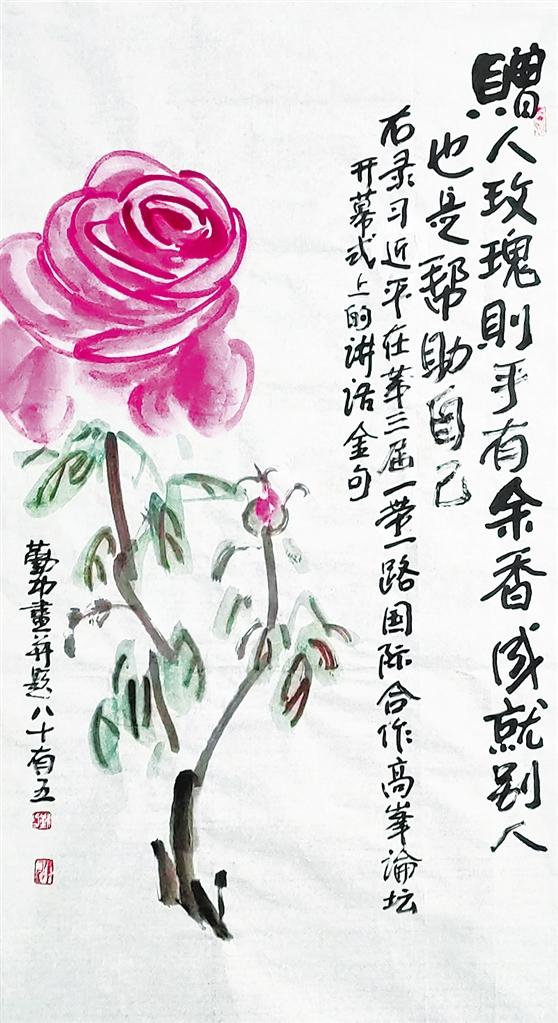 贈人玫瑰則手有余香成就别人
也是帮助自己
右录习近平在第三届一带一路国际合作高峯論坛
开幕式上的讲话金句
勤功畫并题八十有五